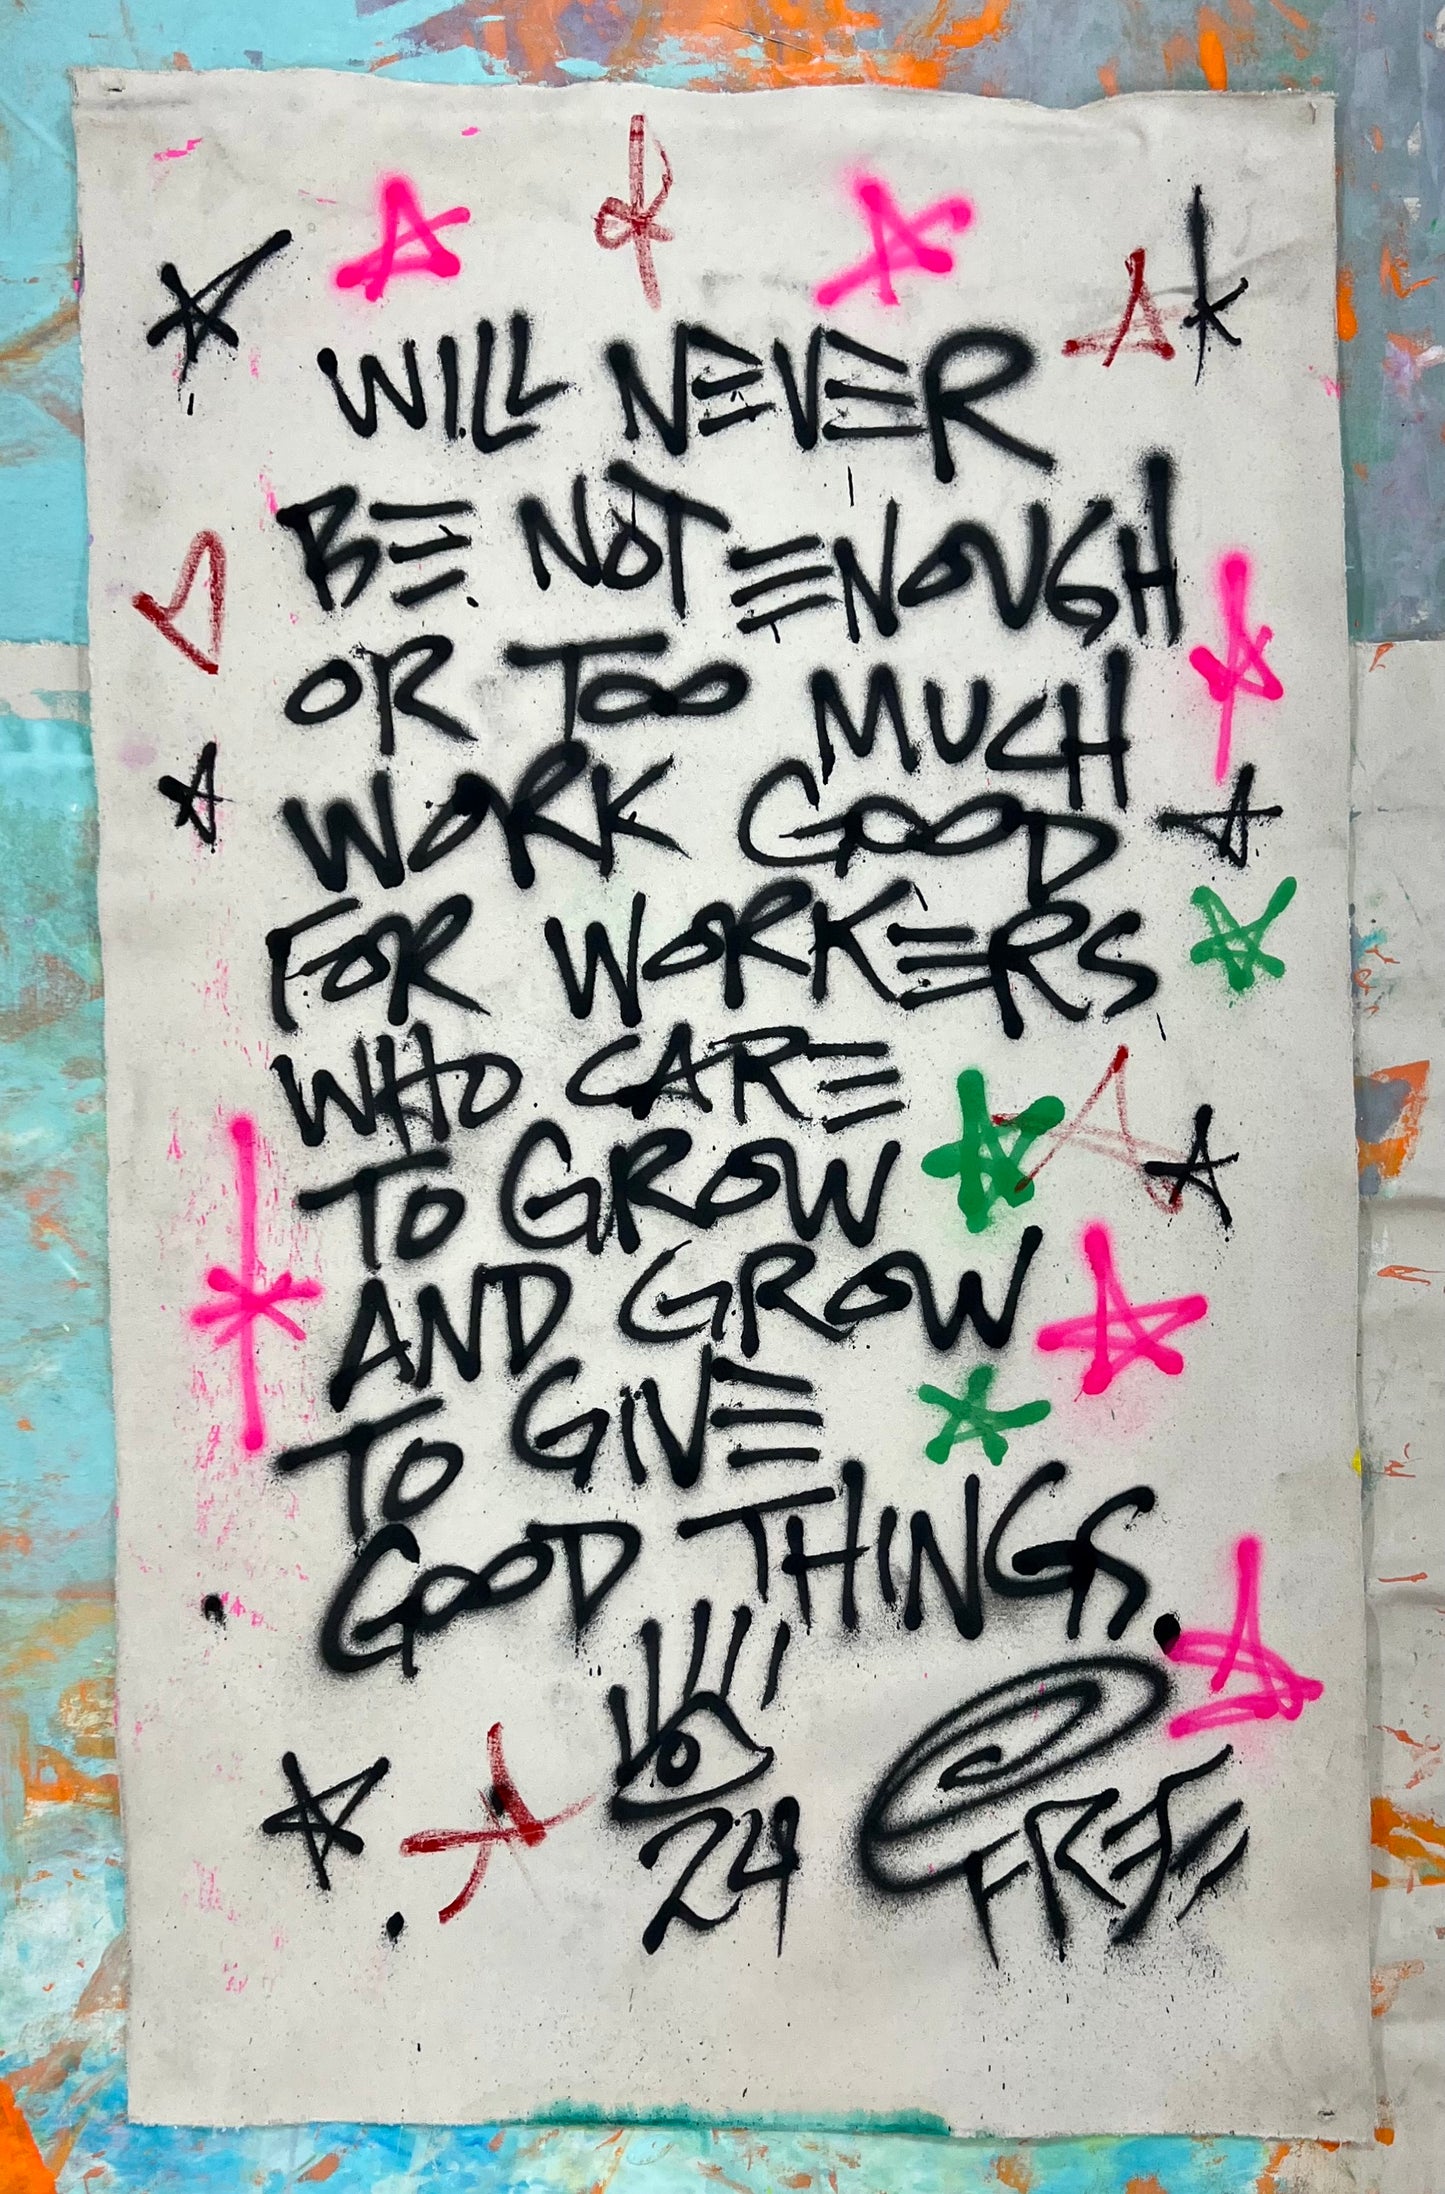 WILL NEVER
BE NOT ENOUGH
OR TOO MUCH
WORK GOOD
FOR WORKERS
WHO CARE
TO GROW
AND GROW
TO GIVE
GOOD THINGS.
24
FREE